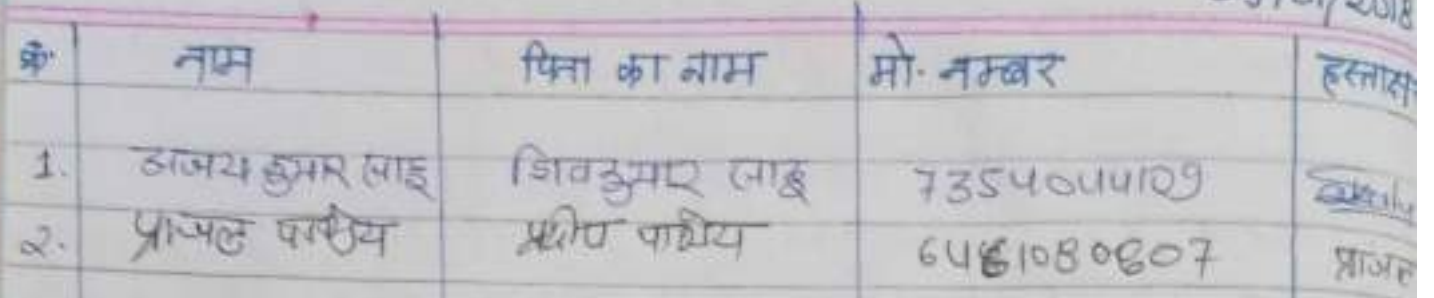 /2018
क्रं. नाम पिता का नाम मो. नम्बर हस्ताक्ष
1. अजय कुमार साहू शिवकुमार साहू 7354044109
2. प्रांजल पाण्डेय प्रदीप पाण्डेय प्रांजल